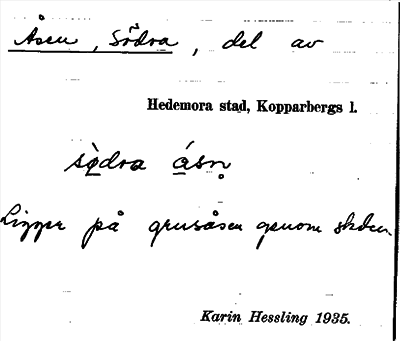 Åsen, Södra, del av
Hedemora stad, Kopparbergs l.
sö̀dra ásn̥
Ligger på grusåsen genom staden.
Karin Hessling 1935.